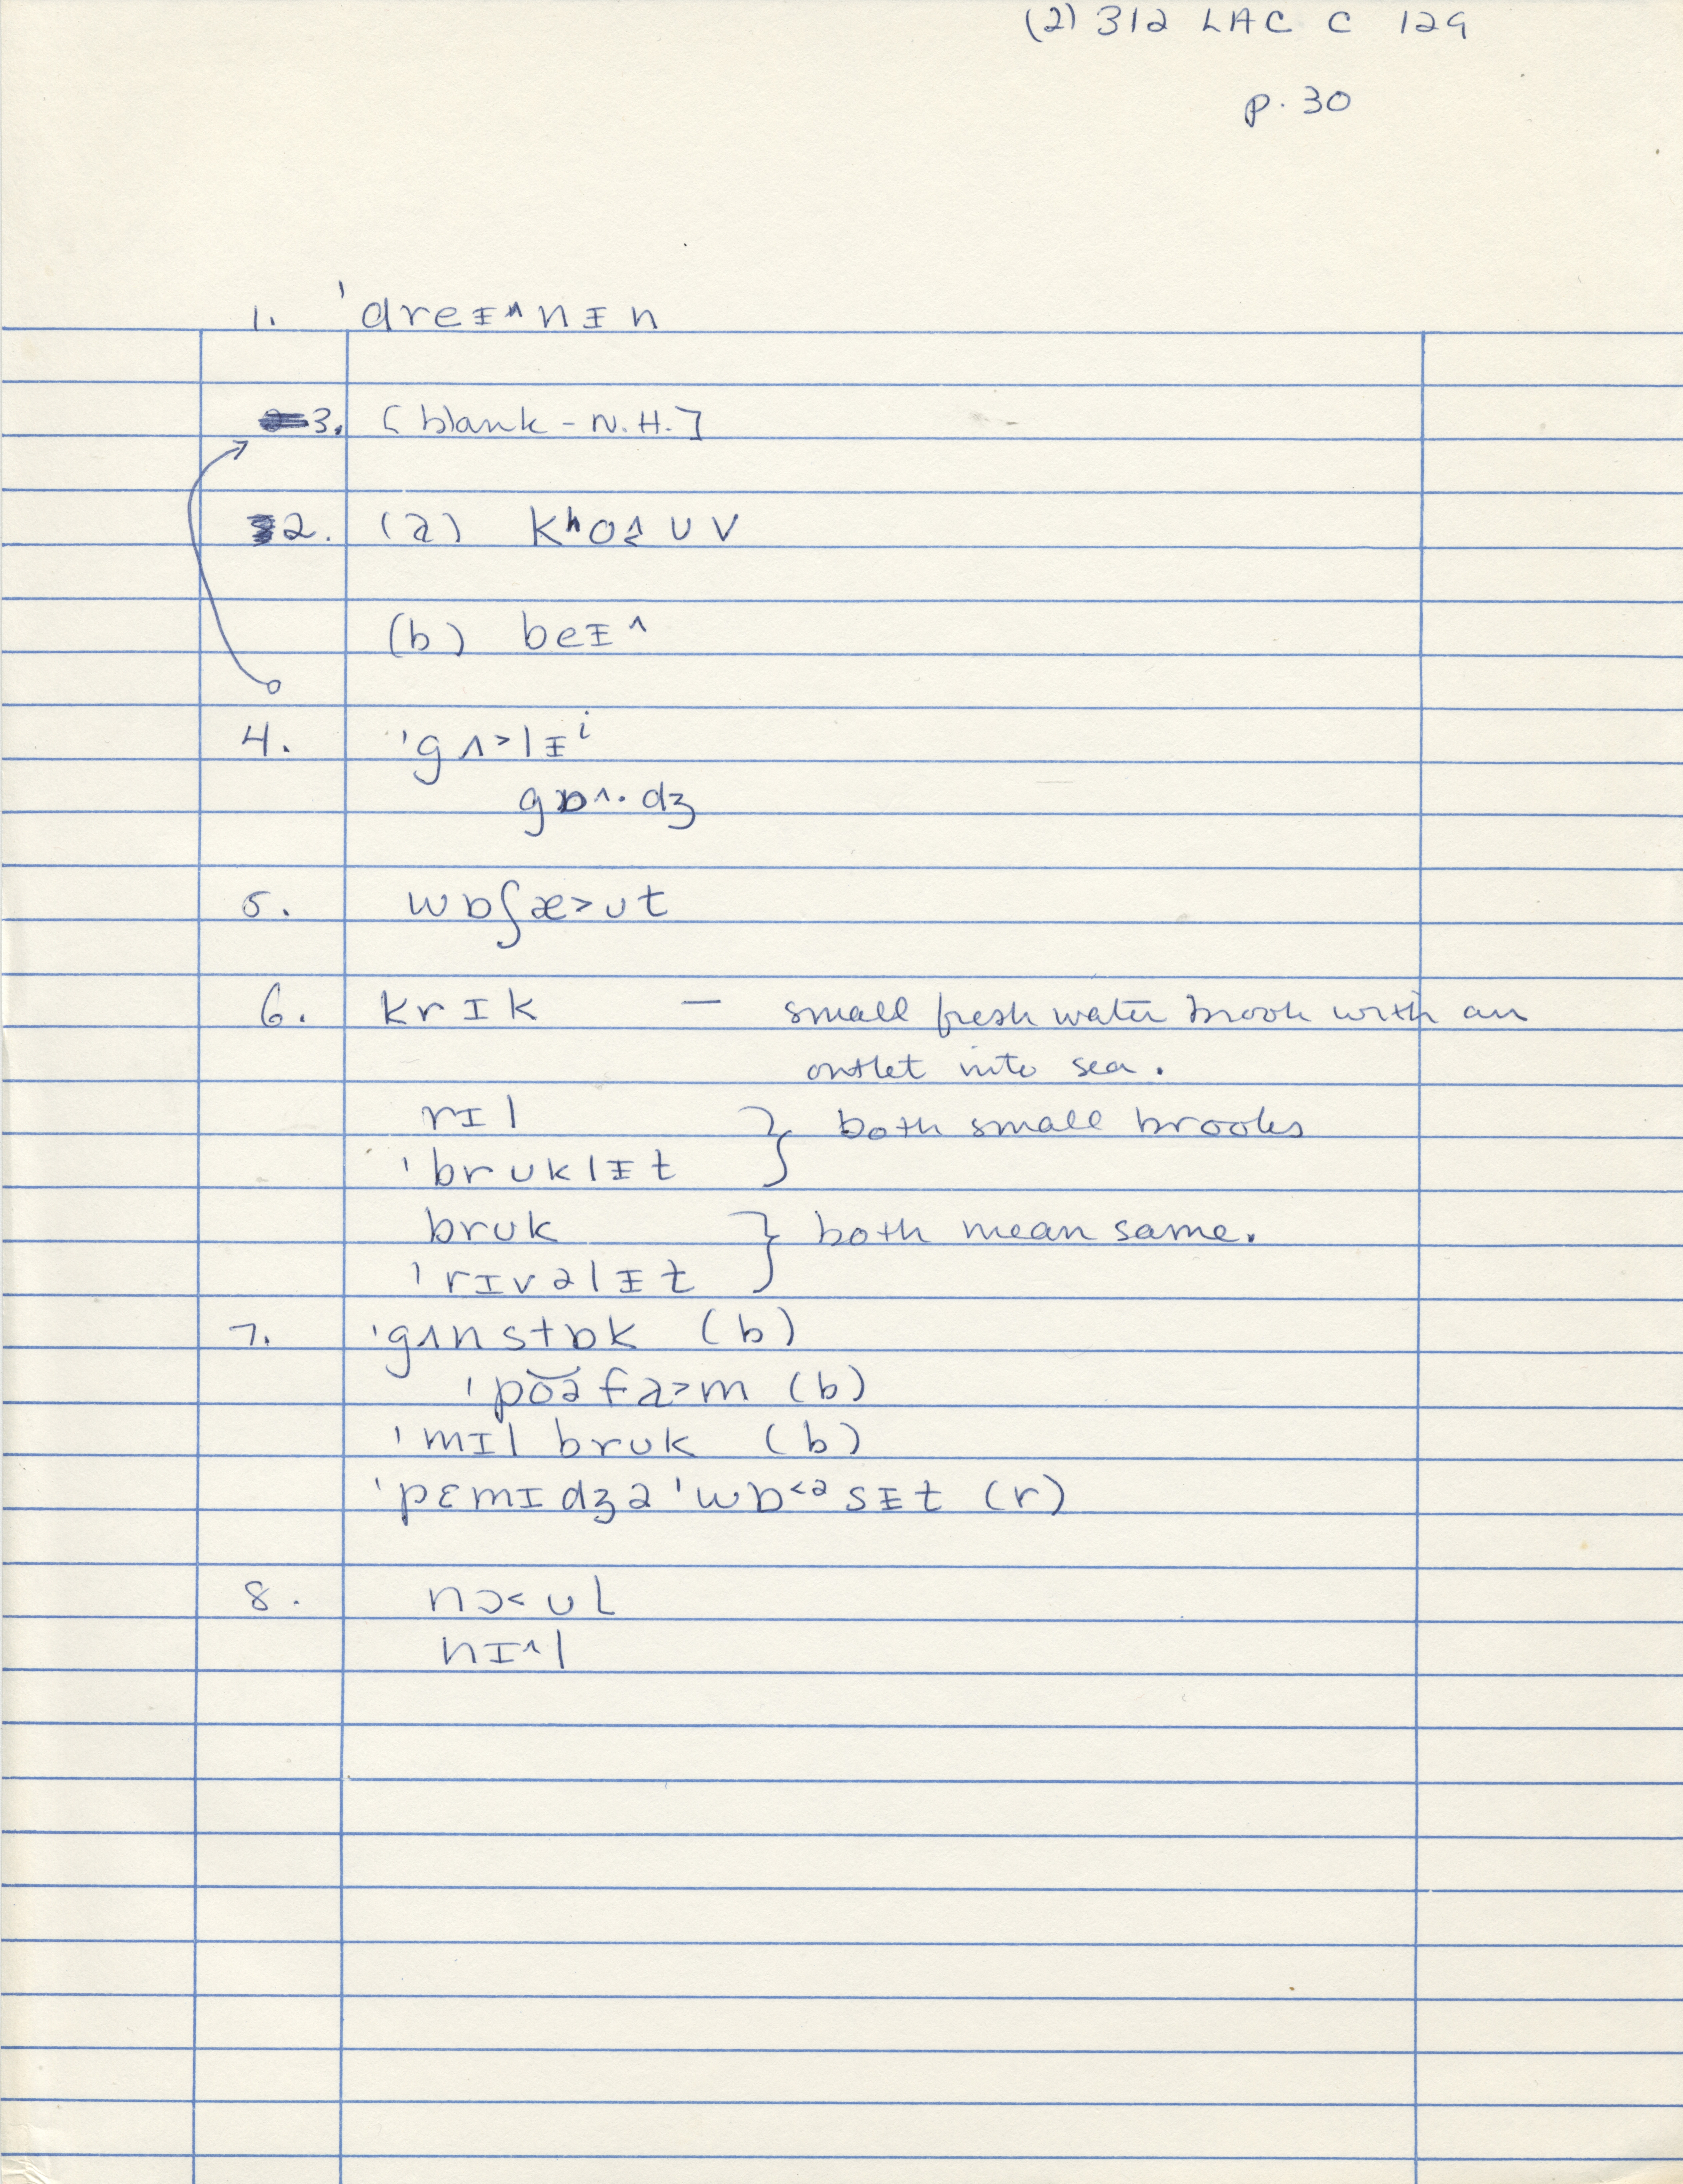 (2) 312 LAC C 129
p. 30
1. ˈdreᵻ^nᵻn
3. [blank - N.H.]
2. (a) kʰo^ʊv
(b) beᵻ^
4. ˈgʌ>lᵻⁱ
gɒ^·dʒ
5. wɒʃæ>ʊt
6. krɪk — small fresh water brook with an
outlet into sea.
rɪl } both small brooks
ˈbrʊklᵻt
bruk } both mean same.
ˈrɪvəlᵻt
7. ˈgʌnstɒk (b)
ˈpoəfa>m (b)
ˈmɪl brʊk (b)
ˈpɛmɪdʒəˈwɒ<ᵊsᵻt (r)
8. nɔ<ʊl
nɪ^l